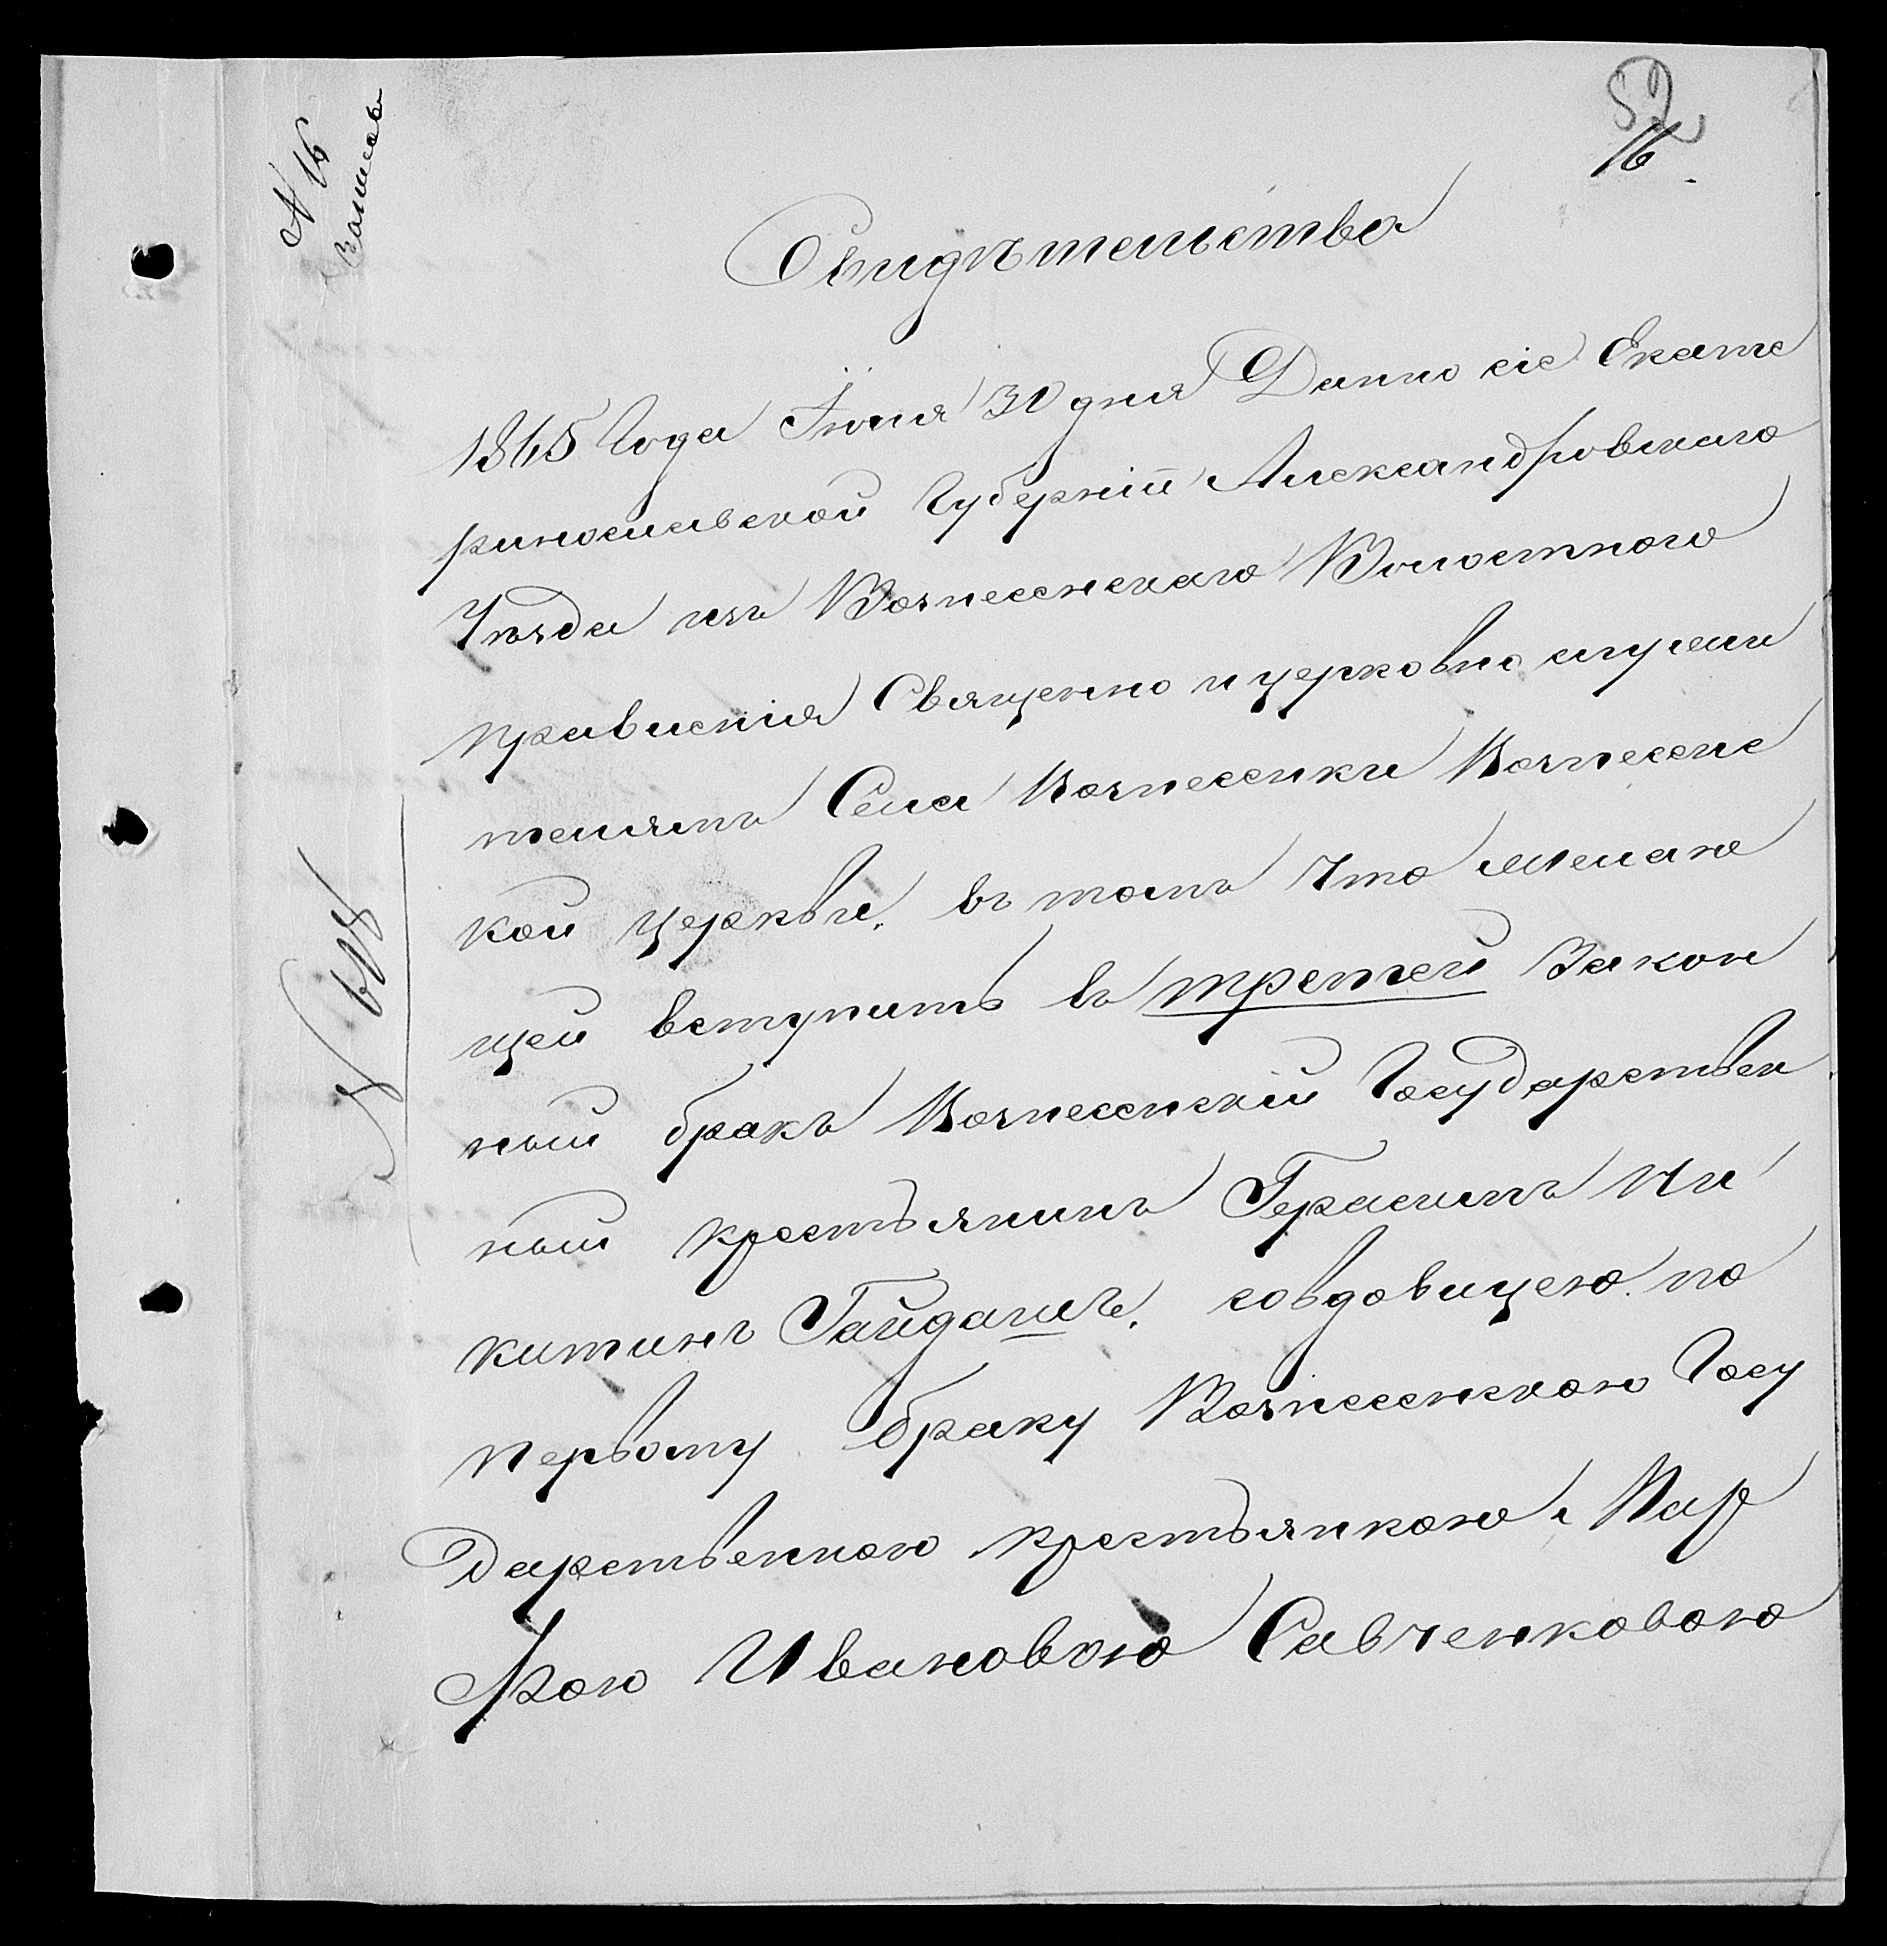 52
16
N 16
Свидѣтельство
1865 Года Іюня 30 дня Данно сіе Екате
ринославской Губерніи Александровскаго
Уѣзда изъ Вознесенскаго Волостного
правленія Священно и церковно служи
телямъ Села Вознесенки Вознесенс
кой церкви, въ томъ что желаю
щей вступить въ третей Закон
ный бракъ Вознесенскій Государствен
ный крестьянинъ Герасимъ Ни
китинъ Гайдашъ, совдовицею по
первому браку Вознесенскою Госу
дарственною крестьянкою Мар
Ивановою Савченковою